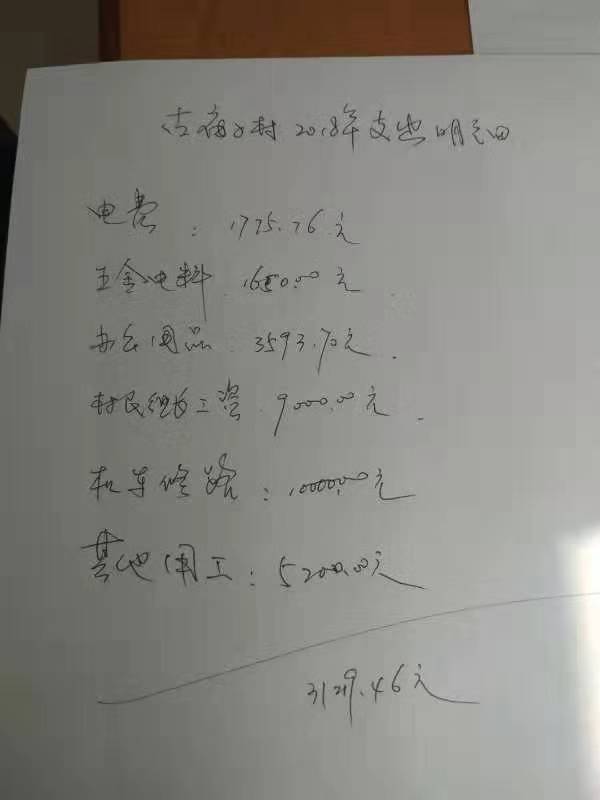 古庙子村 2018年支出明细
电费：1775.76元
五金电料 1650.00元.
办公用品 3593.70元.
村民组长工资 9000.00元.
机车修路：10000.00元
其他用工：5200.00元
31219.46元